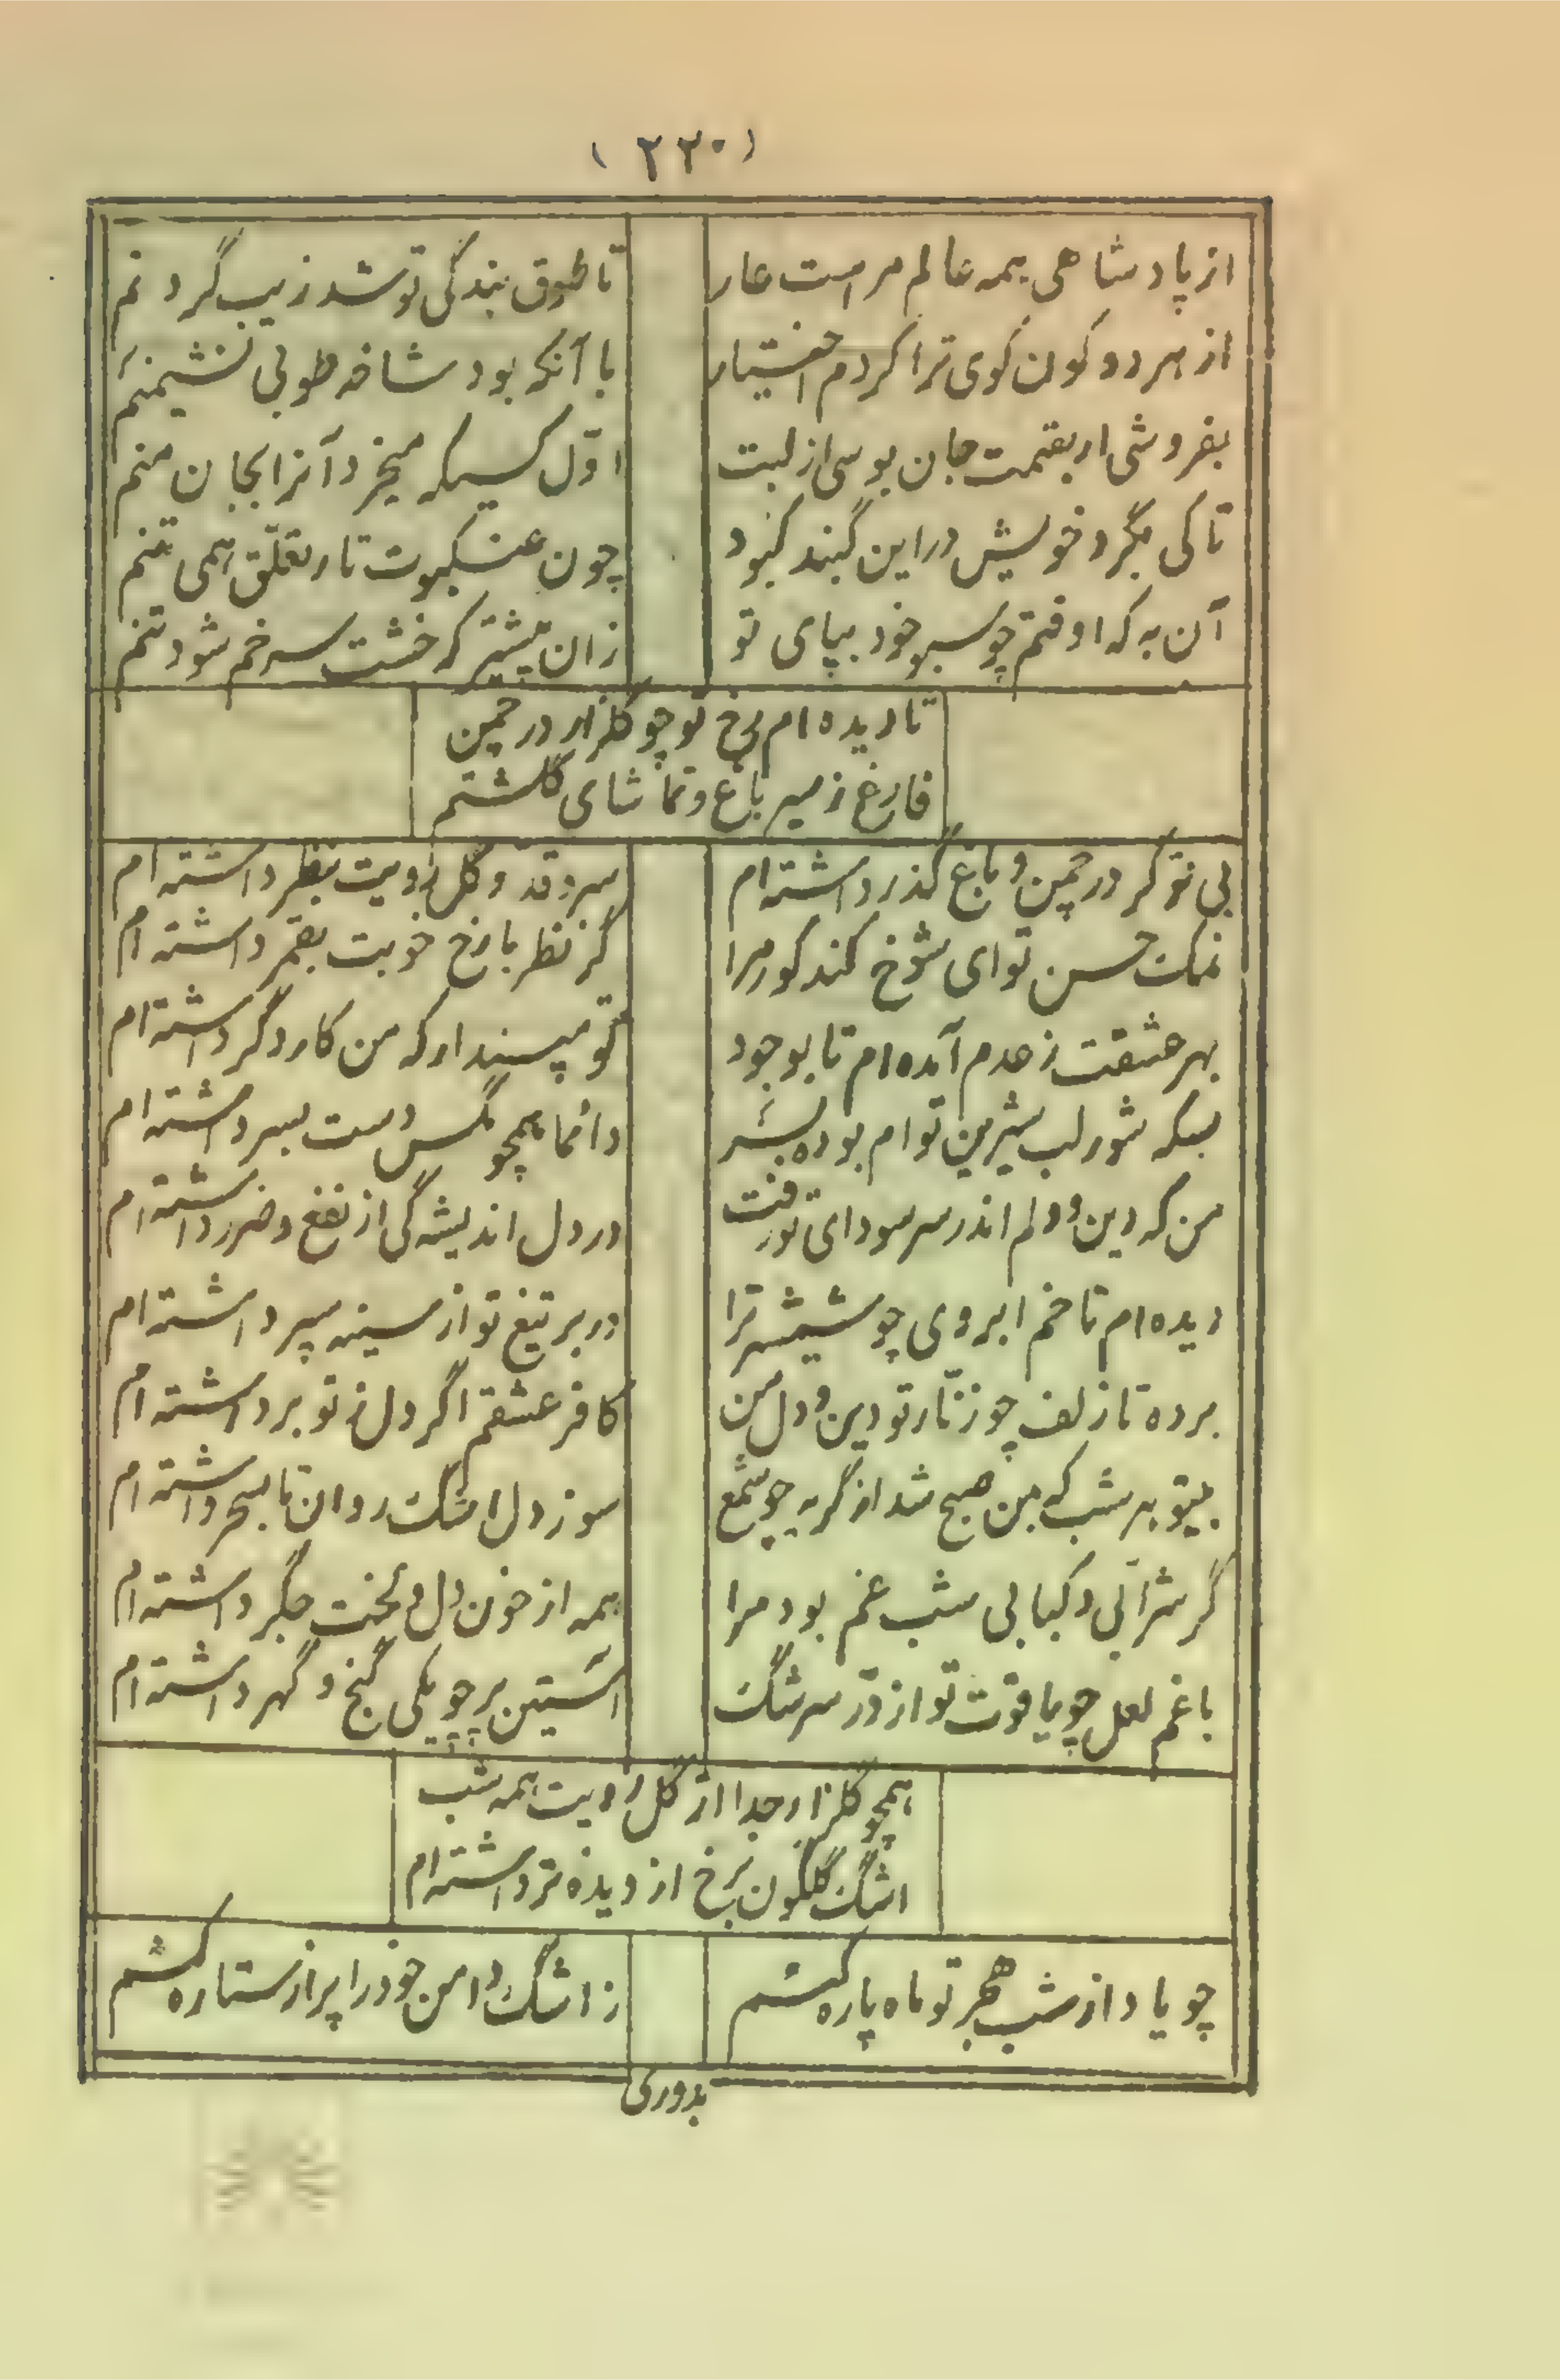 (۲۲۰)
از پادشاهی همه عالم مراست عار
تا طوق بندگی تو شد زیب گردنم
از هر دو کون کوی ترا کردم اختیار
با آنکه بود شاخه طوبی نشیمنم
بفروشی ار بقیمت جان بوسی از لبت
اوّل کسیکه میخرد آنرا بجان منم
تا کی بگرد خویش در این گنبد کبود
چون عنکبوت تار تعلّق همی تنم
آن به که اوفتم چو سبو خود بپای تو
زان پیشتر که خشت سر خم شود تنم
تا دیده ام رخ تو چو گلزار در چمن
فارغ ز سیر باغ و تماشای گلشنم
بی تو گر در چمن و باغ گذر داشته ام
سرو قد و گل رویت بنظر داشته ام
نمک حسن تو ای شوخ کند کور مرا
گر نظر با رخ خوبت بقمر داشته ام
بهر عشقت ز عدم آمده ام تا بوجود
تو مپندار که من کار دگر داشته ام
بسکه شور لب شیرین توام بوده بسر
دائما همچو مگس دست بسر داشته ام
من که دین و دلم اندر سر سودای تو رفت
در دل اندیشه کی از نفع و ضرر داشته ام
دیده ام تا خم ابروی چو شمشیر ترا
در بر تیغ تو از سینه سپر داشته ام
برده تا زلف چو زنّار تو دین و دل من
کافر عشقم اگر دل ز تو بر داشته ام
بیتو هر شب که بمن صبح شد از گریه چو شمع
سوز دل اشک روان تا بسحر داشته ام
گر شرابی و کبابی شب غم بود مرا
همه از خون دل و لخت جگر داشته ام
با غم لعل چو یاقوت تو از درّ سرشک
آستین پر چو یکی گنج و گهر داشته ام
همچو گلزار جدا از گل رویت همه شب
اشک گلگون برخ از دیده تر داشته ام
چو یاد از شب هجر تو ماه پاره کشم
ز اشک دامن خود را پر از ستاره کشم
بدوری